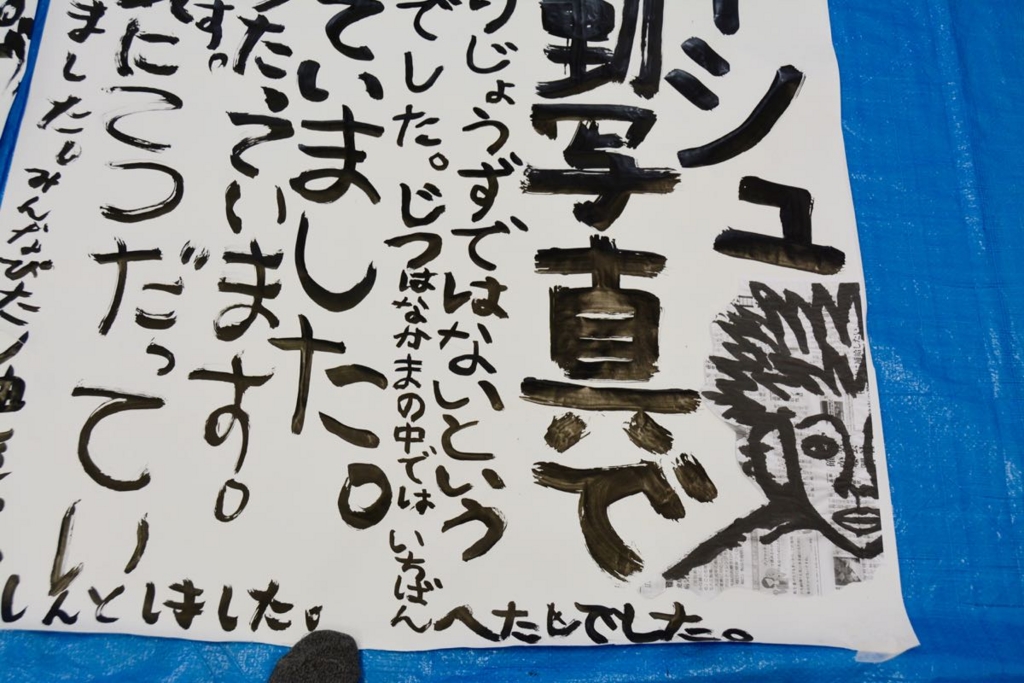 ーシュ
動写真で
りじょうずではないという
でした。じつはなかまの中では いちばん
でした。
ていました。
す。
っています。
にてつだってい
ました。みんな
しんとしました。